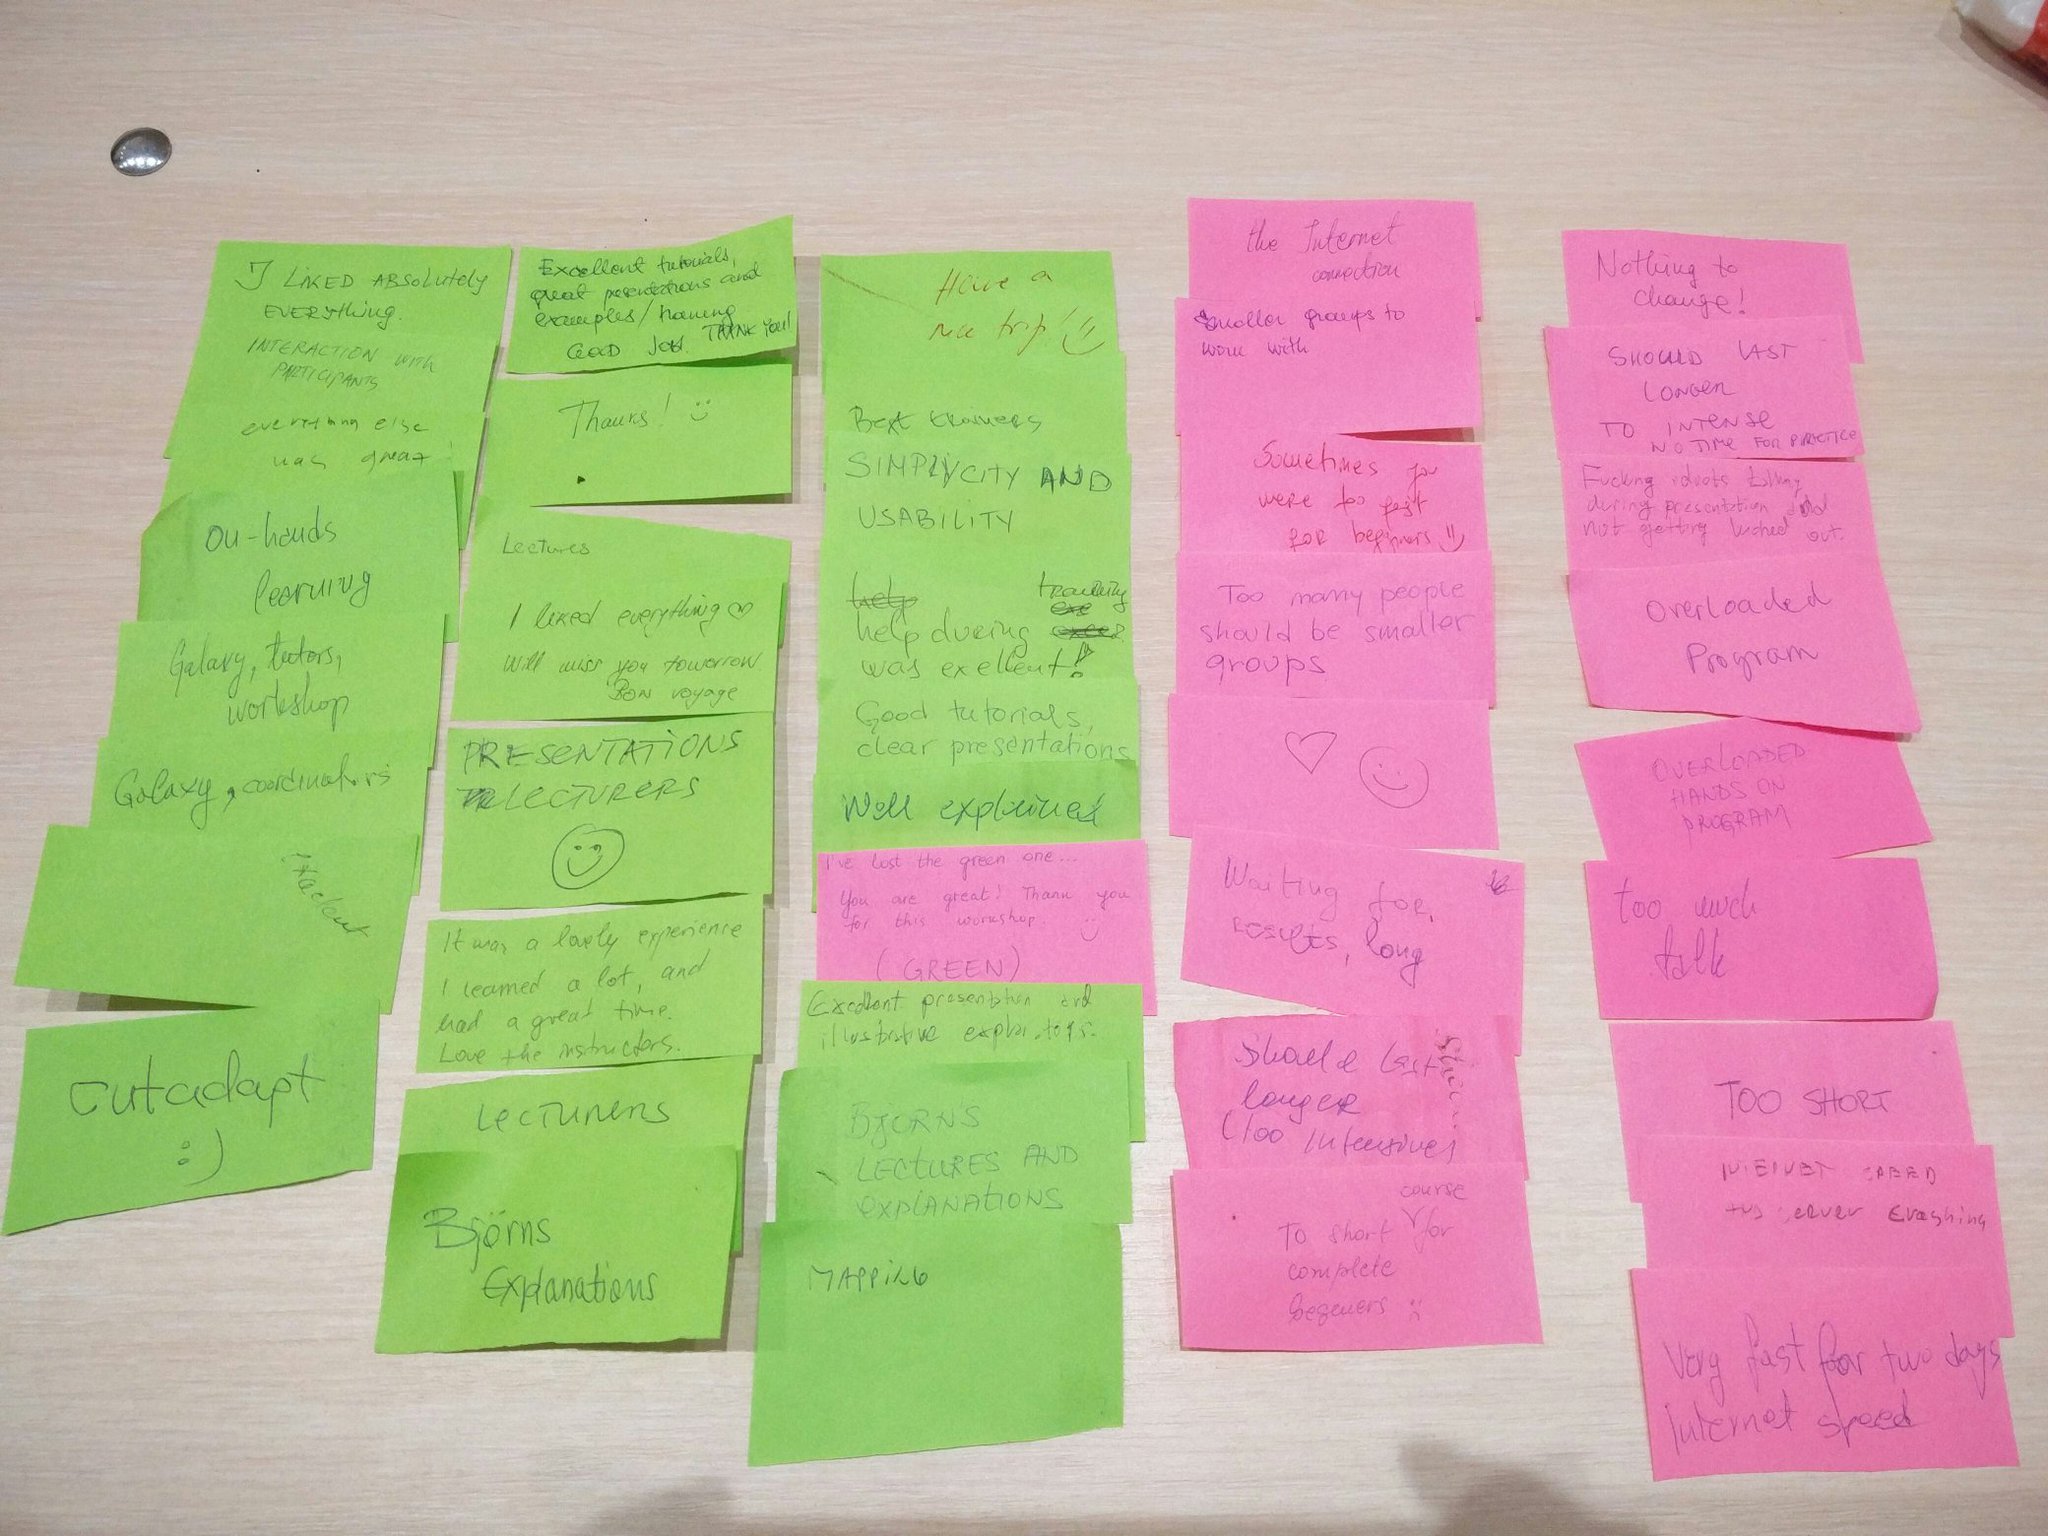 I LIKED ABSOLUTELY
EVERYTHING.
INTERACTION WITH
PARTICIPANTS
everything else
was great!
On-hands
learning
Galaxy, tutors,
workshop
Galaxy, coordinators
cutadapt
:)
Excellent tutorials,
great presentations and
examples/training
GOOD JOB. THANK YOU!
Thanks!
Lectures
I liked everything ♡
Will miss you tomorrow
Bon voyage
PRESENTATIONS
LECTURERS
It was a lovely experience
I learned a lot, and
had a great time.
Love the instructors.
LECTURERS
Björns
Explanations
Have a
nice trip!
Best trainers
SIMPLYCITY AND
USABILITY
help training
help during
was exellent!
Good tutorials,
clear presentations
Well explained
I've lost the green one...
You are great! Thank you
for this workshop
(GREEN)
Excellent presentation and
illustrative
BJORN'S
LECTURES AND
EXPLANATIONS
MAPPING
the Internet
connection
Smaller groups to
work with
Sometimes you
were too fast
FOR beginners
Too many people
should be smaller
groups
Waiting for
results, long
should last
longer
(too intensive)
course
To short for
complete
Nothing to
change!
SHOULD LAST
LONGER
TO INTENSE
NO TIME FOR PRACTICE
Fucking idiots talking
during presentation and
not getting kicked out.
Overloaded
Program
OVERLOADED
HANDS ON
PROGRAM
too much
talk
TOO SHORT
INTERNET SPEED
server crashing
Very fast for two days
Internet speed